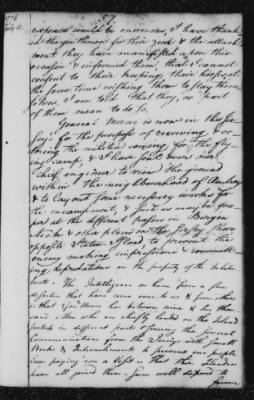 57.
1776
July 11.
expence would be enormous, I have thank-
ed the gentlemen for their zeal & the attach-
ment they have manifested upon this
occasion & informed them that I cannot
consent to their keeping their horses at
the same time wishing them to stay them-
selves, I am told that they, or part
of them mean to do so.
General Mercer is now in the Jer-
seys for the purpose of receiving & or-
dering the militia coming for the fly-
ing camp, & I have sent over our
chief engineer to view the ground
within the neighbourhood of Amboy
& to lay out some necessary works for
the encampment, & such as may be pro-
per at the different passes in Bergen
Neck & other places on the Jersey shore
opposite Staten Island to prevent the
enemy making impressions & committ-
ing depredations on the property of the inhabi-
tants. The Intelligence we have from a few
deserters that have come over to us & from others
is that Genl Howe has between nine & ten thou-
sand Men who are chiefly landed on the Island
posted in different parts & securing the several
Communications from the Jerseys with small
Works & Intrenchments to prevent our people
from paying em a visit - That the Islanders
have all joined them - seem well disposed to
favour